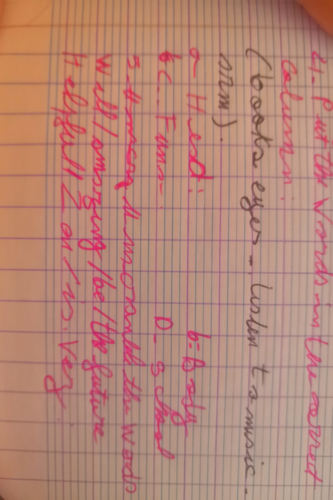 2. Put the words in the correct
column:
(books eyes - listen to music -
arm).
a- Head: b- Body
c- Funn D- school
3- the words
will / amazing / be / the future
Helpfull / on / is. Very.